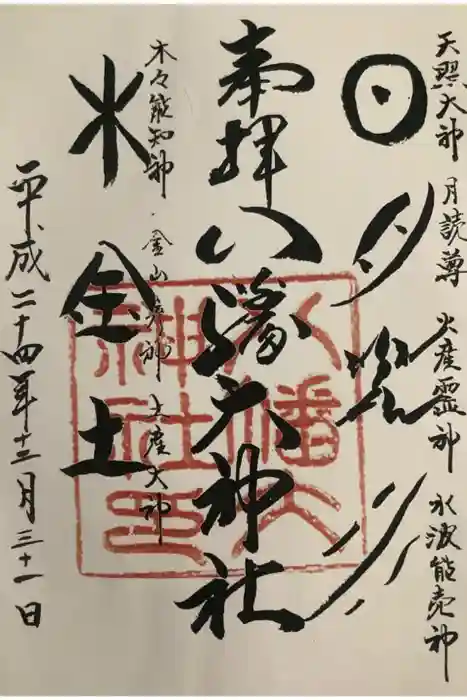 天照大神 月読尊 火産霊神 水波能売神
日月
奉拝 八幡大神社
八幡大神社印
木々能知神・金山彦神 土産大神
木金土
平成二十四年十二月三十一日